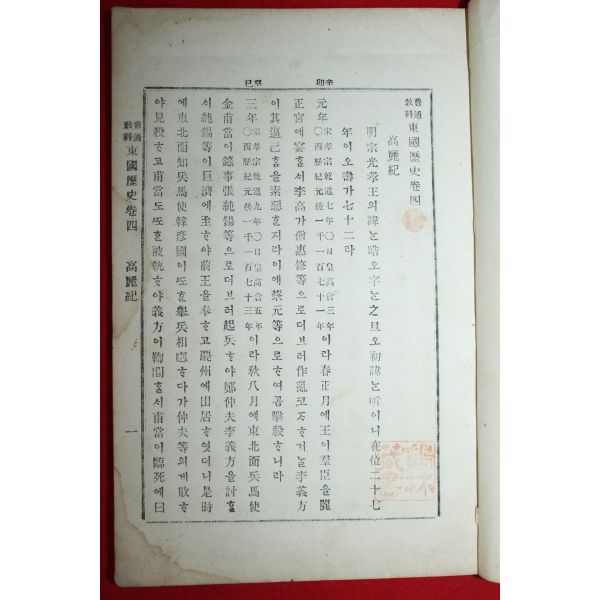 辛卯
癸巳
普通教科 東國歷史卷四
高麗紀
明宗光孝王의 諱ᄂᆞᆫ 晧오 字ᄂᆞᆫ 之旦오 初諱ᄂᆞᆫ 昕이니 在位二十七
年이오 壽가 七十二라
元年 宋孝宗乾道七年〇日皇高倉三年〇西歷紀元後一千一百七十一年 이라 春正月에 王이 羣臣을 麗
正宮에 宴ᄒᆞᆯᄉᆡ 李高가 僧惠修等으로 더브러 作亂코ᄌᆞᄒᆞ거ᄂᆞᆯ 李義方
이 其逼己ᄒᆞᆷ을 素惡ᄒᆞ지라 이에 蔡元等으로 ᄒᆞ여곰 擊殺ᄒᆞ니라
三年 宋孝宗乾道九年〇日皇高倉五年〇西歷紀元後一千一百七十三年 이라 秋八月에 東北面兵馬使
金甫當이 錄事張純錫等으로 더브러 起兵ᄒᆞ야 鄭仲夫李義方을 討ᄒᆞᆯ
ᄉᆡ 純錫等이 巨濟에 至ᄒᆞ야 前王을 奉ᄒᆞ고 慶州에 出居ᄒᆞ엿더니 是時
에 東北面知兵馬使韓彦國이 ᄯᅩᄒᆞᆫ 擧兵相應ᄒᆞ다가 仲夫等의게 敗ᄒᆞ
야 見殺ᄒᆞ고 甫當도 ᄯᅩᄒᆞᆫ 被執ᄒᆞ야 義方이 鞫問ᄒᆞᆯᄉᆡ 甫當이 臨死에 曰
普通教科 東國歷史卷四 高麗紀 一